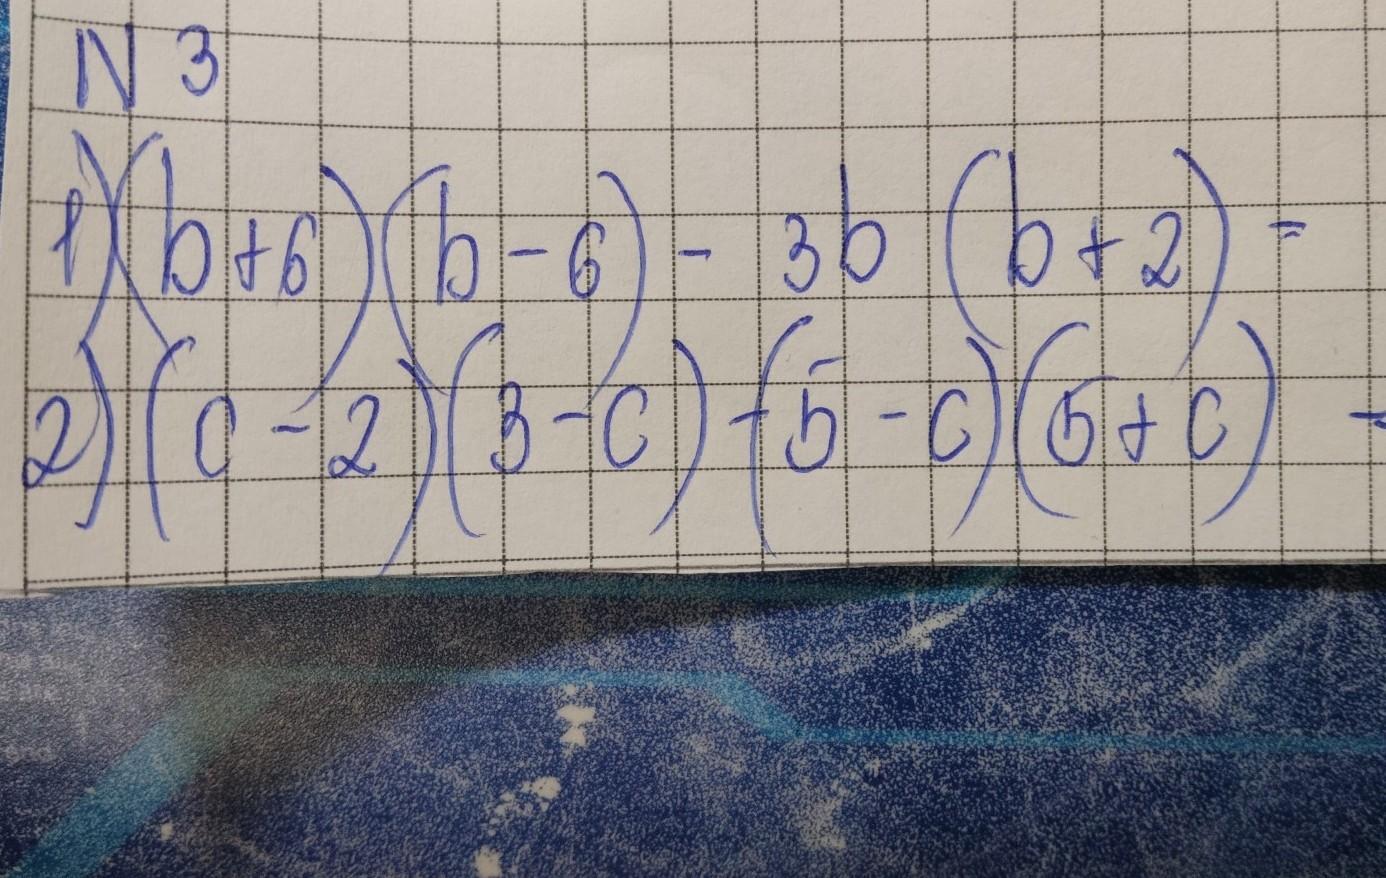 N 3
1) (b+6)(b-6) - 3b (b+2) =
2) (c-2)(3-c) - (5-c)(5+c) =